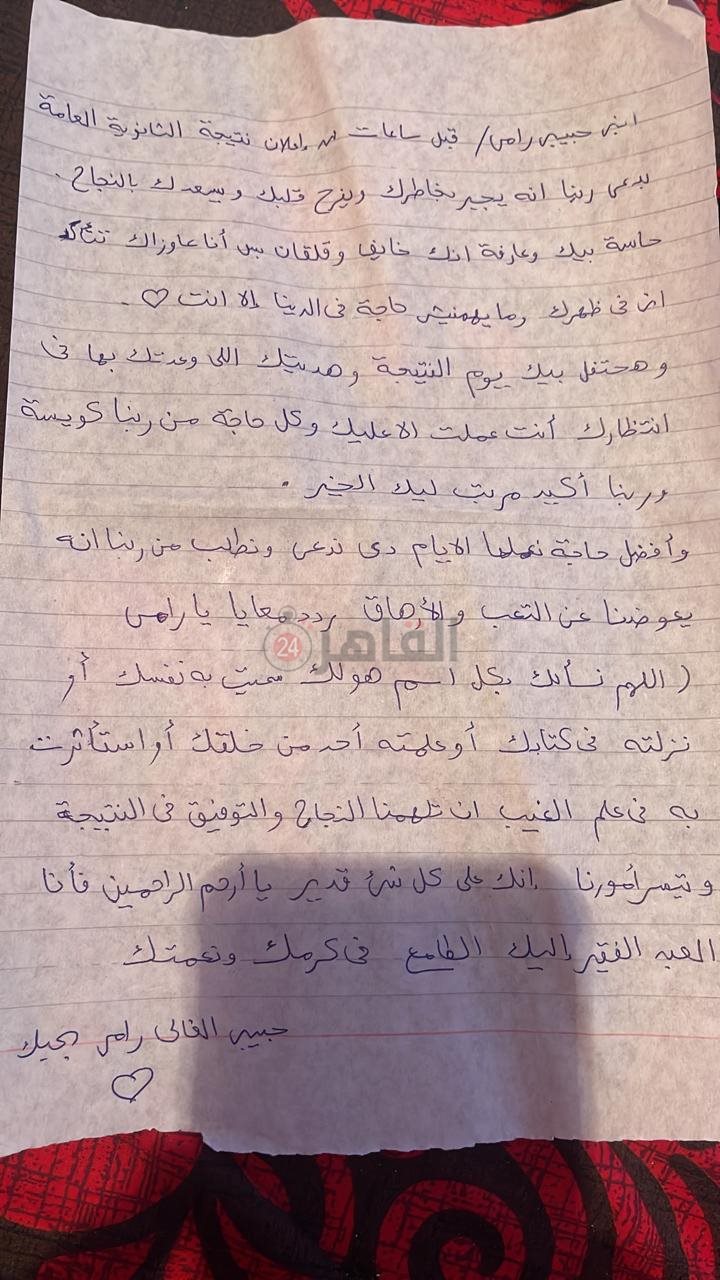 ابني حبيبي رامي/ قبل ساعات من إعلان نتيجة الثانوية العامة
بدعي ربنا انه يجبر بخاطرك ويفرح قلبك ويسعدك بالنجاح.
حاسة بيك وعارفة انك خايف وقلقان بس أنا عاوزاك تتأكد
اني في ظهرك وما يهمنيش حاجة في الدنيا إلا انت ♡.
وهحتفل بيك يوم النتيجة وهديتك اللي وعدتك بها في
انتظارك أنت عملت الا عليك وكل حاجة من ربنا كويسة
وربنا أكيد مرتب ليك الخير.
وأفضل حاجة نعملها الايام دي ندعي ونطلب من ربنا انه
يعوضنا عن التعب والأرهاق ردد معايا يا رامي
القاهرة 24
( اللهم نسألك بكل اسم هو لك سميت به نفسك أو
نزلته في كتابك أو علمته أحد من خلقك أو استأثرت
به في علم الغيب ان تلهمنا النجاح والتوفيق في النتيجة
وتيسر أمورنا إنك على كل شئ قدير يا أرحم الراحمين فأنا
العبد الفقير إليك الطامع في كرمك ونعمتك
حبيبي الغالي رامي بحبك
♡